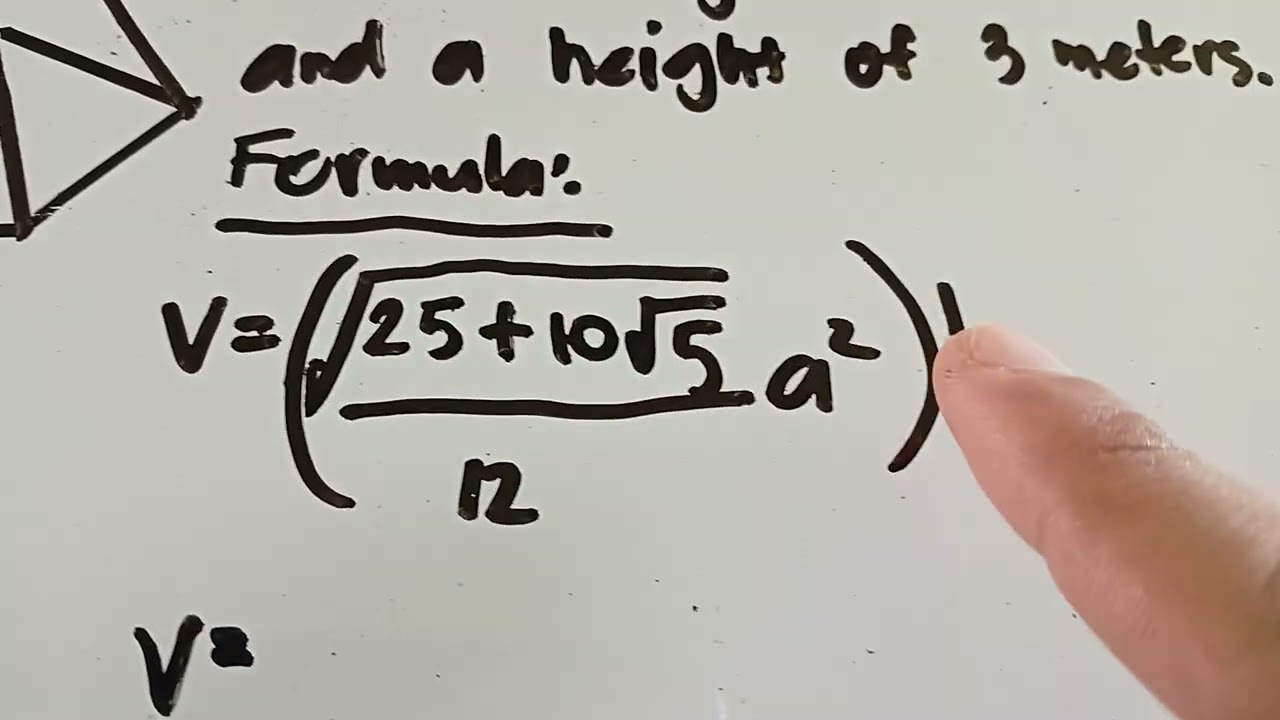 and a height of 3 meters.
Formula:
V=(√25+10√5/12 a²)
V=